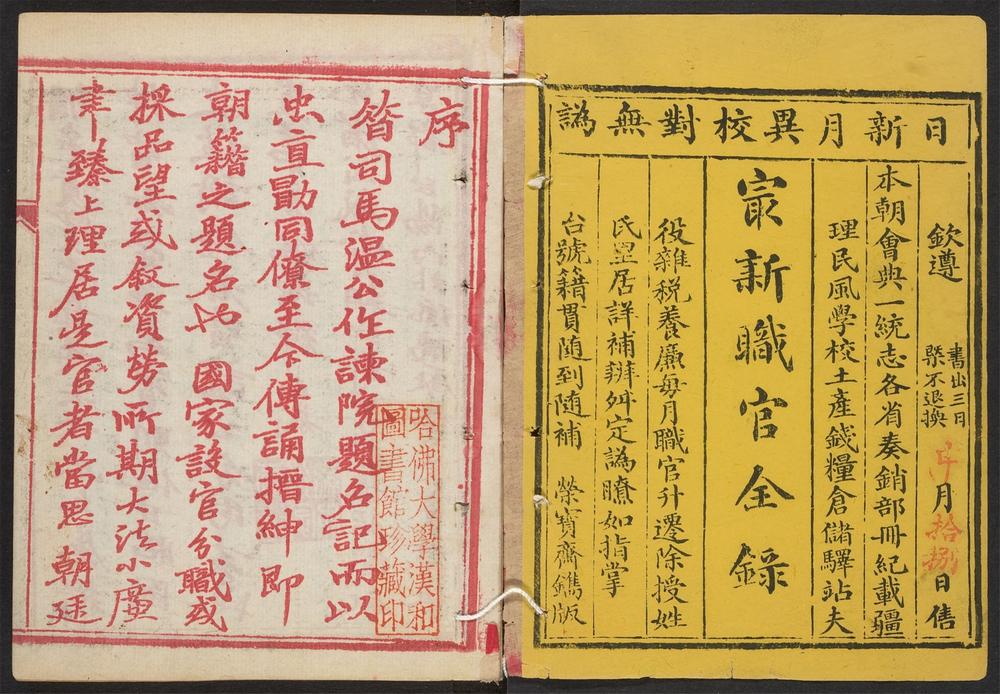 日新月異校對無譌
欽遵 書出三日 槩不退換 月拾捌日售
本朝會典一統志各省奏銷部冊紀載疆
理民風學校土產錢糧倉儲驛站夫
㝡新職官全錄
役雜稅養廉每月職官升遷除授姓
氏里居詳補辨舛定譌瞭如指掌
台號籍貫隨到隨補 榮寶齋鐫版
序
㫺司馬温公作諫院題名記而以
忠直勖同僚至今傳誦搢紳即
朝籍之題名也 國家設官分職或
採品望或敘資勞所期大法小廉
聿臻上理居是官者當思 朝廷
哈佛大學漢和
圖書館珍藏印